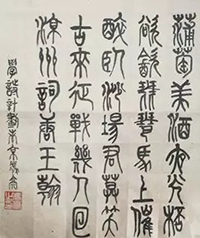 蒲萄美酒夜光桮
欲飲琵琶馬上催
醉臥沙場君莫笑
古來征戰幾人回
涼州詞唐王翰
学設計南京